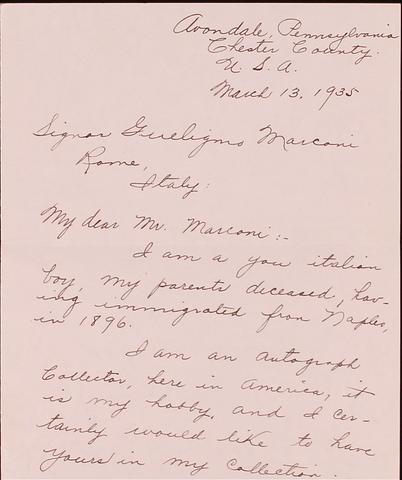 Avondale, Pennsylvania
Chester County.
U. S. A.
March 13, 1935
Signor Gueligmo Marconi
Rome,
Italy:
My dear Mr. Marconi:-
I am a you italian
boy, my parents deceased, hav-
ing immigrated fron Naples,
in 1896.
I am an autograph
Collector, here in America, it
is my hobby, and I cer-
tainly would like to have
yours in my collection.